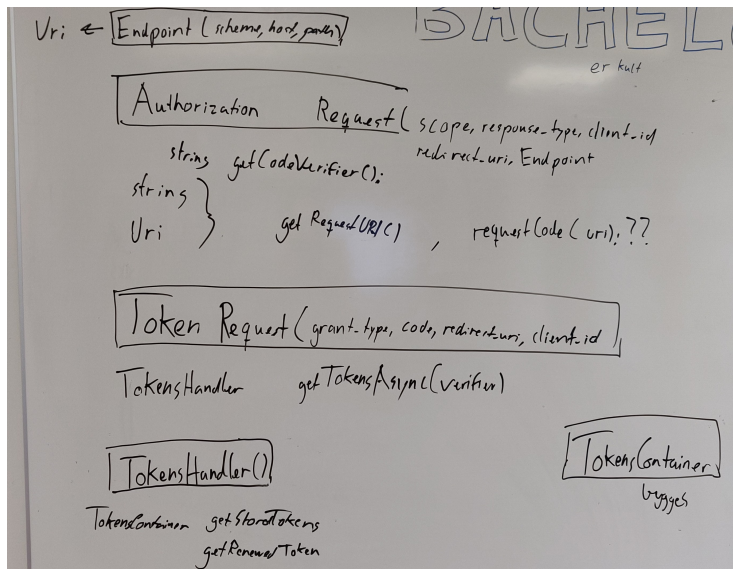 Uri ← Endpoint (scheme, host, path)
BACHEL
er kult
Authorization Request( scope, response_type, client_id
redirect_uri, Endpoint
string getCodeVerifier();
string
Uri } get RequestURI() , requestCode( uri); ??
Token Request( grant_type, code, redirect_uri, client_id
TokensHandler getTokensAsync(verifier)
TokensHandler()
TokensContainer
bygges
TokensContainer getStoredTokens
getRenewedToken